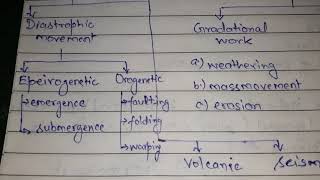 Diastrophic
movement
Gradational
work
a) weathering
b) massmovement
c) erosion
Epeirogenetic
emergence
submergence
Orogenetic
faulting
folding
warping
Volcanic